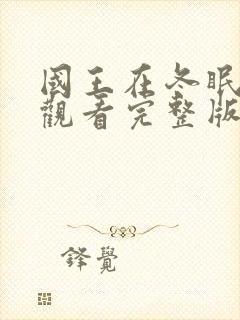 國王在冬眠
觀看完整版
鋒覺